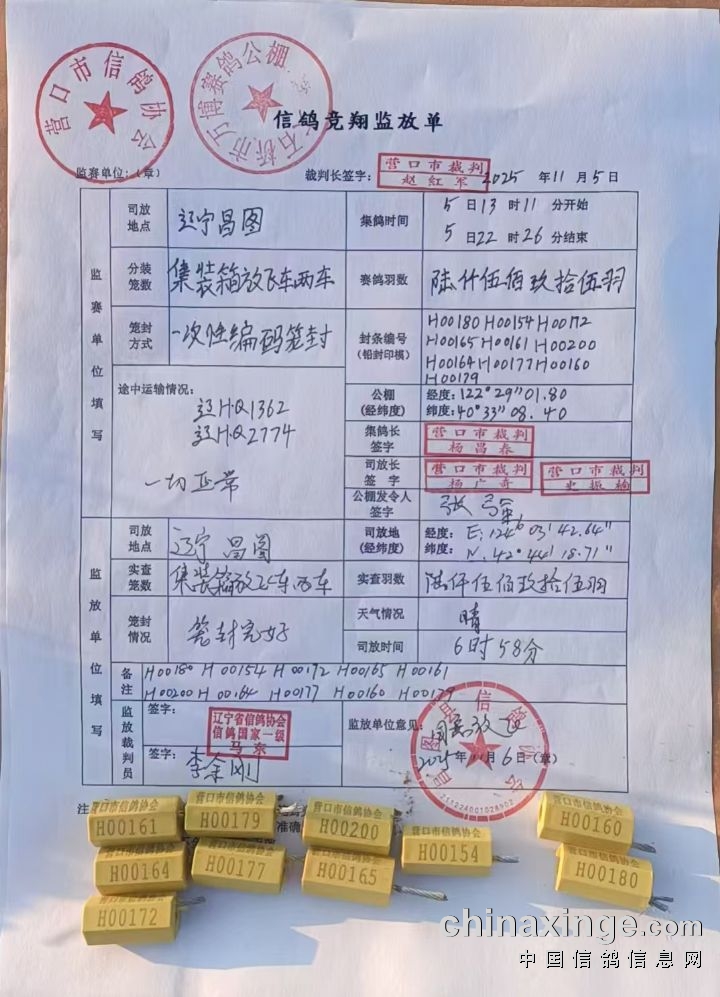 营口市信鸽协会
大石桥市万博赛鸽公棚
信鸽竞翔监放单
监赛单位:(章)
裁判长签字:
营口市裁判
赵红军
2025 年 11 月 5 日
监赛单位填写
司放地点
辽宁昌图
集鸽时间
5 日 13 时 11 分开始
5 日 22 时 26 分结束
分装笼数
集装箱放飞车两车
赛鸽羽数
陆仟伍佰玖拾伍羽
笼封方式
一次性编码笼封
封条编号
(铅封印模)
H00180 H00154 H00172
H00165 H00161 H00200
H00164 H00177 H00160
H00179
途中运输情况:
辽H·Q1362
辽H·Q2774
一切正常
公棚
(经纬度)
经度:122°29"01.80
纬度:40°33"08.40
集鸽长签字
营口市裁判
杨昌春
司放长签字
营口市裁判
杨广奇
营口市裁判
史振楠
公棚发令人签字
监放单位填写
司放地点
辽宁昌图
司放地
(经纬度)
经度: E: 124° 03' 42.64"
纬度: N. 42°44' 18.71"
实查笼数
集装箱放飞车两车
实查羽数
陆仟伍佰玖拾伍羽
笼封情况
笼封完好
天气情况
晴
司放时间
6时58分
备注
H00180 H00154 H00172 H00165 H00161
H00200 H00164 H00177 H00160 H00179
监放裁判员
签字:
辽宁省信鸽协会
信鸽国家一级
马东
签字:
李余刚
监放单位意见:
同意放飞
2025年11月6日(章)
注
准确
营口市信鸽协会
H00161
营口市信鸽协会
H00179
营口市信鸽协会
H00200
营口市信鸽协会
H00154
营口市信鸽协会
H00160
H00164
H00177
H00165
营口市信鸽协会
H00180
营口市信鸽协会
H00172
chinaxinge.com
中国信鸽信息网